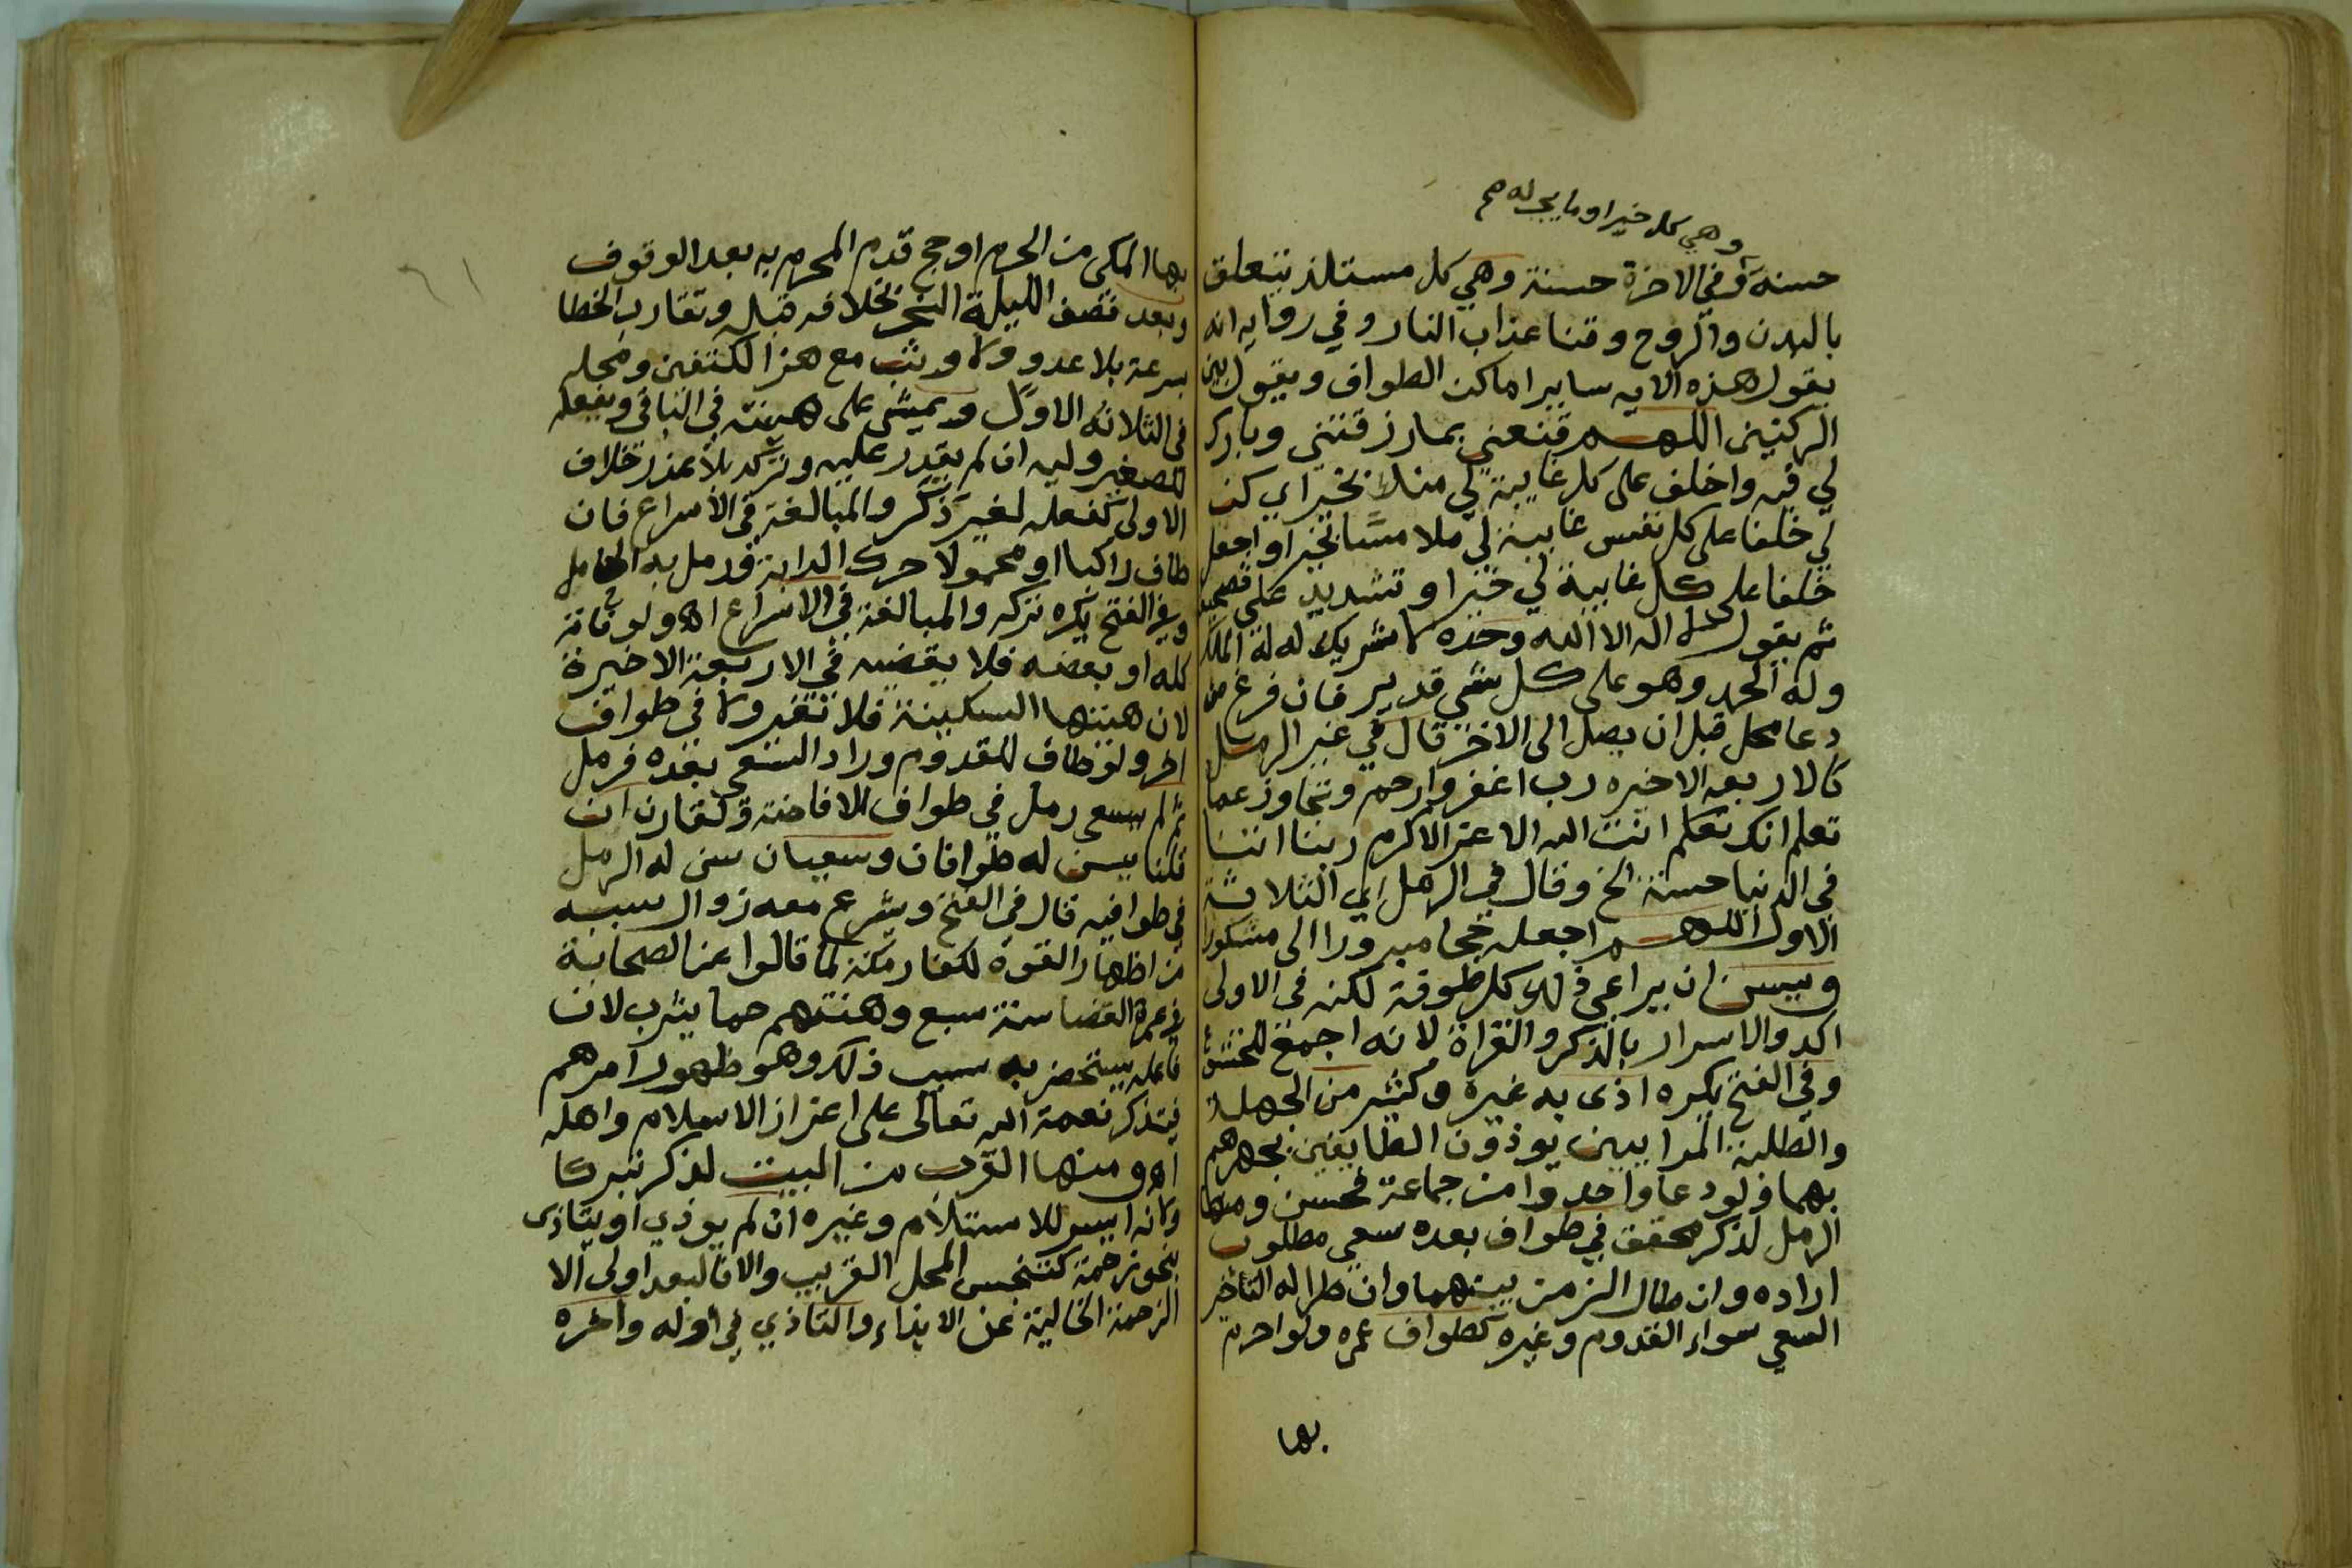 وهي كل خير او ما يجر له صح
حسنة وفي الاخرة حسنة وهي كل مستلذ يتعلق
بالبدن والروح وقنا عذاب النار وفي رواية انه
يقول هذه الاية ساير اماكن الطواف ويقول بين
الركنين اللهم قنعني بما رزقتني وبارك
لي فيه واخلف على كل غايبة لي منك بخير اي كن
لي خلفا على كل نفس غايبة لي ملامسا بخير او اجعل
خلفا على كل غايبة لي خيرا وتشديد على
ثم يقول لا اله الا الله وحده لا شريك له له الملك
وله الحمد وهو على كل شي قدير فان فرغ من
دعا محل قبل ان يصل الى الاخر قال في غير الرمل
كالاربعه الاخيره رب اغفر وارحم وتجاوز عما
تعلم انك تعلم انت الله الاعز الاكرم ربنا اتنا
في الدنيا حسنة الخ وقال في الرمل اي الثلاثة
الاول اللهم اجعله حجا مبرورا الى مشكورا
ويسن ان يراعي ذلك كل طوفة لكنه في الاولى
اكد والاسرار بالذكر والقراة لانه اجمع للخشوع
وفي الفتح يكره اذى به غيره وكثير من الجهلة
والطلبة المرايين يوذون الطايفين بجهرهم
بهما ولو دعا واحد وامن جماعة فحسن ومنها
الرمل لذكر محقق في طواف بعده سعي مطلوب
اراده وان طال الزمن بينهما وان طرا له التاخير
السعي سواء القدوم وغيره كطواف عمره ولو احرم
بها
بها المكي من الحرم او حج قدم المحرم به بعد الوقوف
وبعد نصف الليلة النحر بخلافه قبله وتقارب الخطا
بسرعة بلا عدو ولا وثب مع هز الكتفين ومحله
في الثلاثة الاول ويمشي على هينته في الباقي ويفعله
للصغير وليه ان لم يقدر عليه وتركه بلا عذر خلاف
الاولى كفعله لغير ذكر والمبالغة في الاسراع فان
طاف راكبا او محمولا حرك الدابة ورمل به الحامل
وفي الفتح يكره تركه والمبالغة في الاسراع اه ولو فاته
كله او بعضه فلا يقضيه في الاربعة الاخيرة
لان هينتها السكينة فلا تغير ولا في طواف
اخر ولو طاف للقدوم وراد السعي بعده فرمل
ثم لم يسعى رمل في طواف الافاضة ولقارن ان
قلنا يسن له طوافان وسعيان سن له الرمل
في طوافيه قال في الفتح ويشرع معه زوال سببه
من اظهار القوة لكفار مكة لما قالوا عن الصحابة
في عمرة القضا سنة سبع وهنتهم حما يثرب لان
فاعله يستحضر به سبب ذلك وهو ظهور امرهم
فيتذكر نعمة الله تعالى على اعزاز الاسلام واهله
اه ومنها القرب من البيت لذكر تبركا
ولانه ايسر للاستلام وغيره ان لم يوذي او يتاذى
بنحو زحمة كتنجس المحل القريب والا فالبعد اولى الا
الزحمة الخالية عن الايذاء والتاذي في اوله واخره